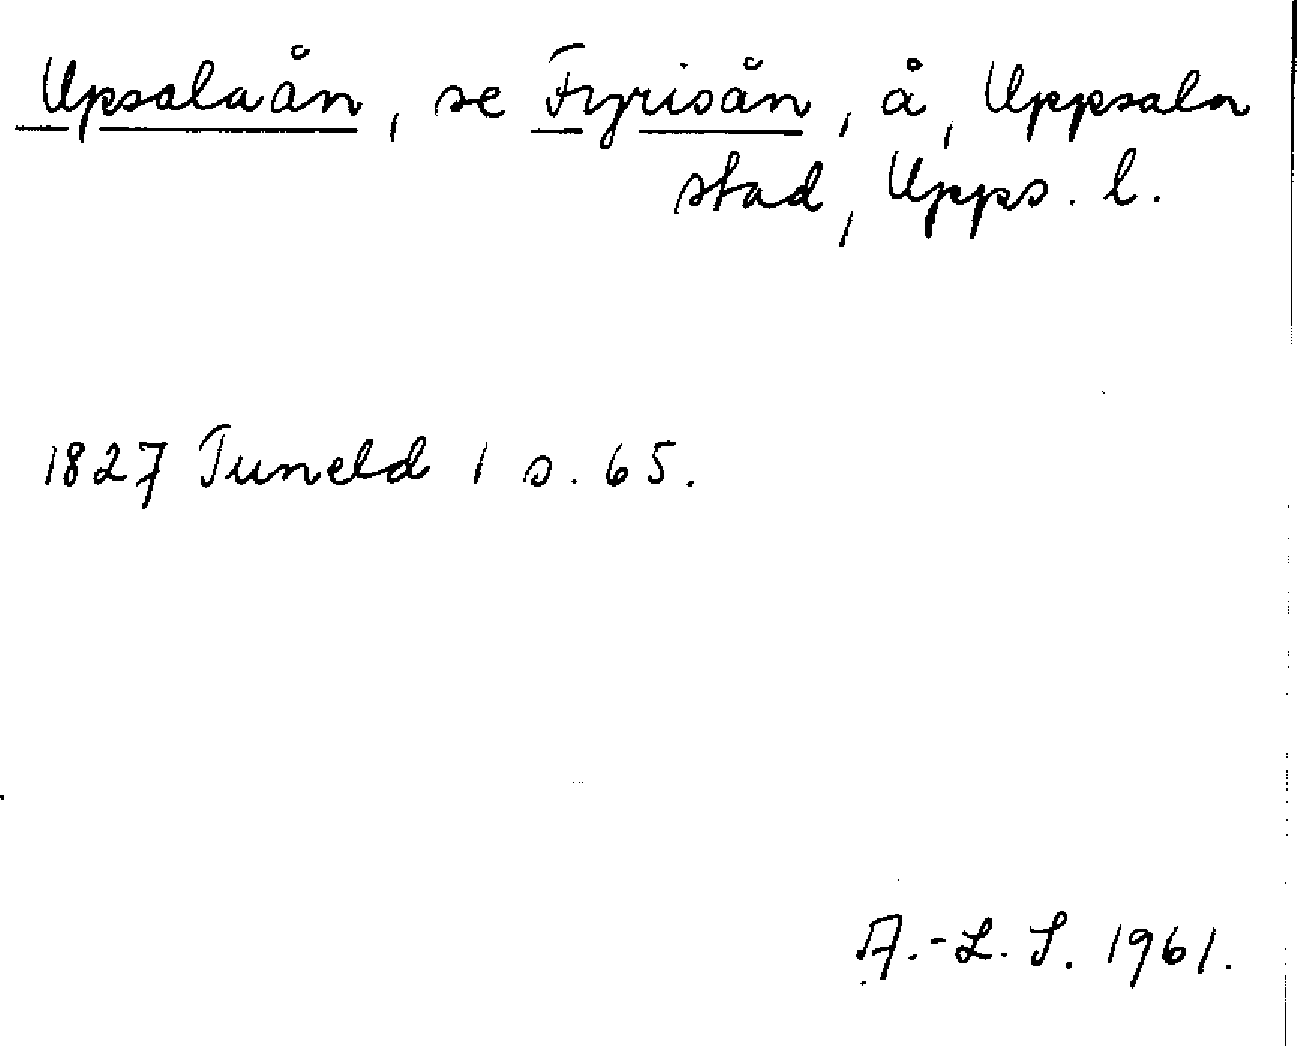 Upsalaån, se Fyrisån, å, Uppsala
stad, Upps. l.
1827 Tuneld 1 s. 65.
A.-L. S. 1961.